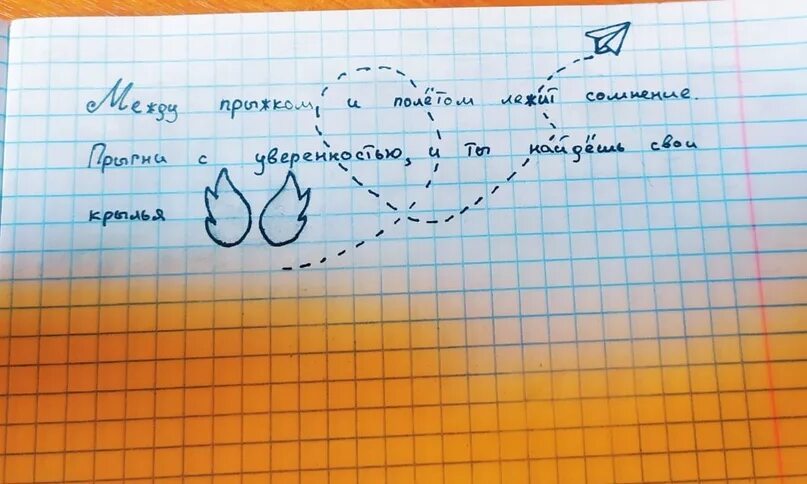 Между прыжком и полётом лежит сомнение.
Прыгни с уверенностью, и ты найдёшь свои
крылья